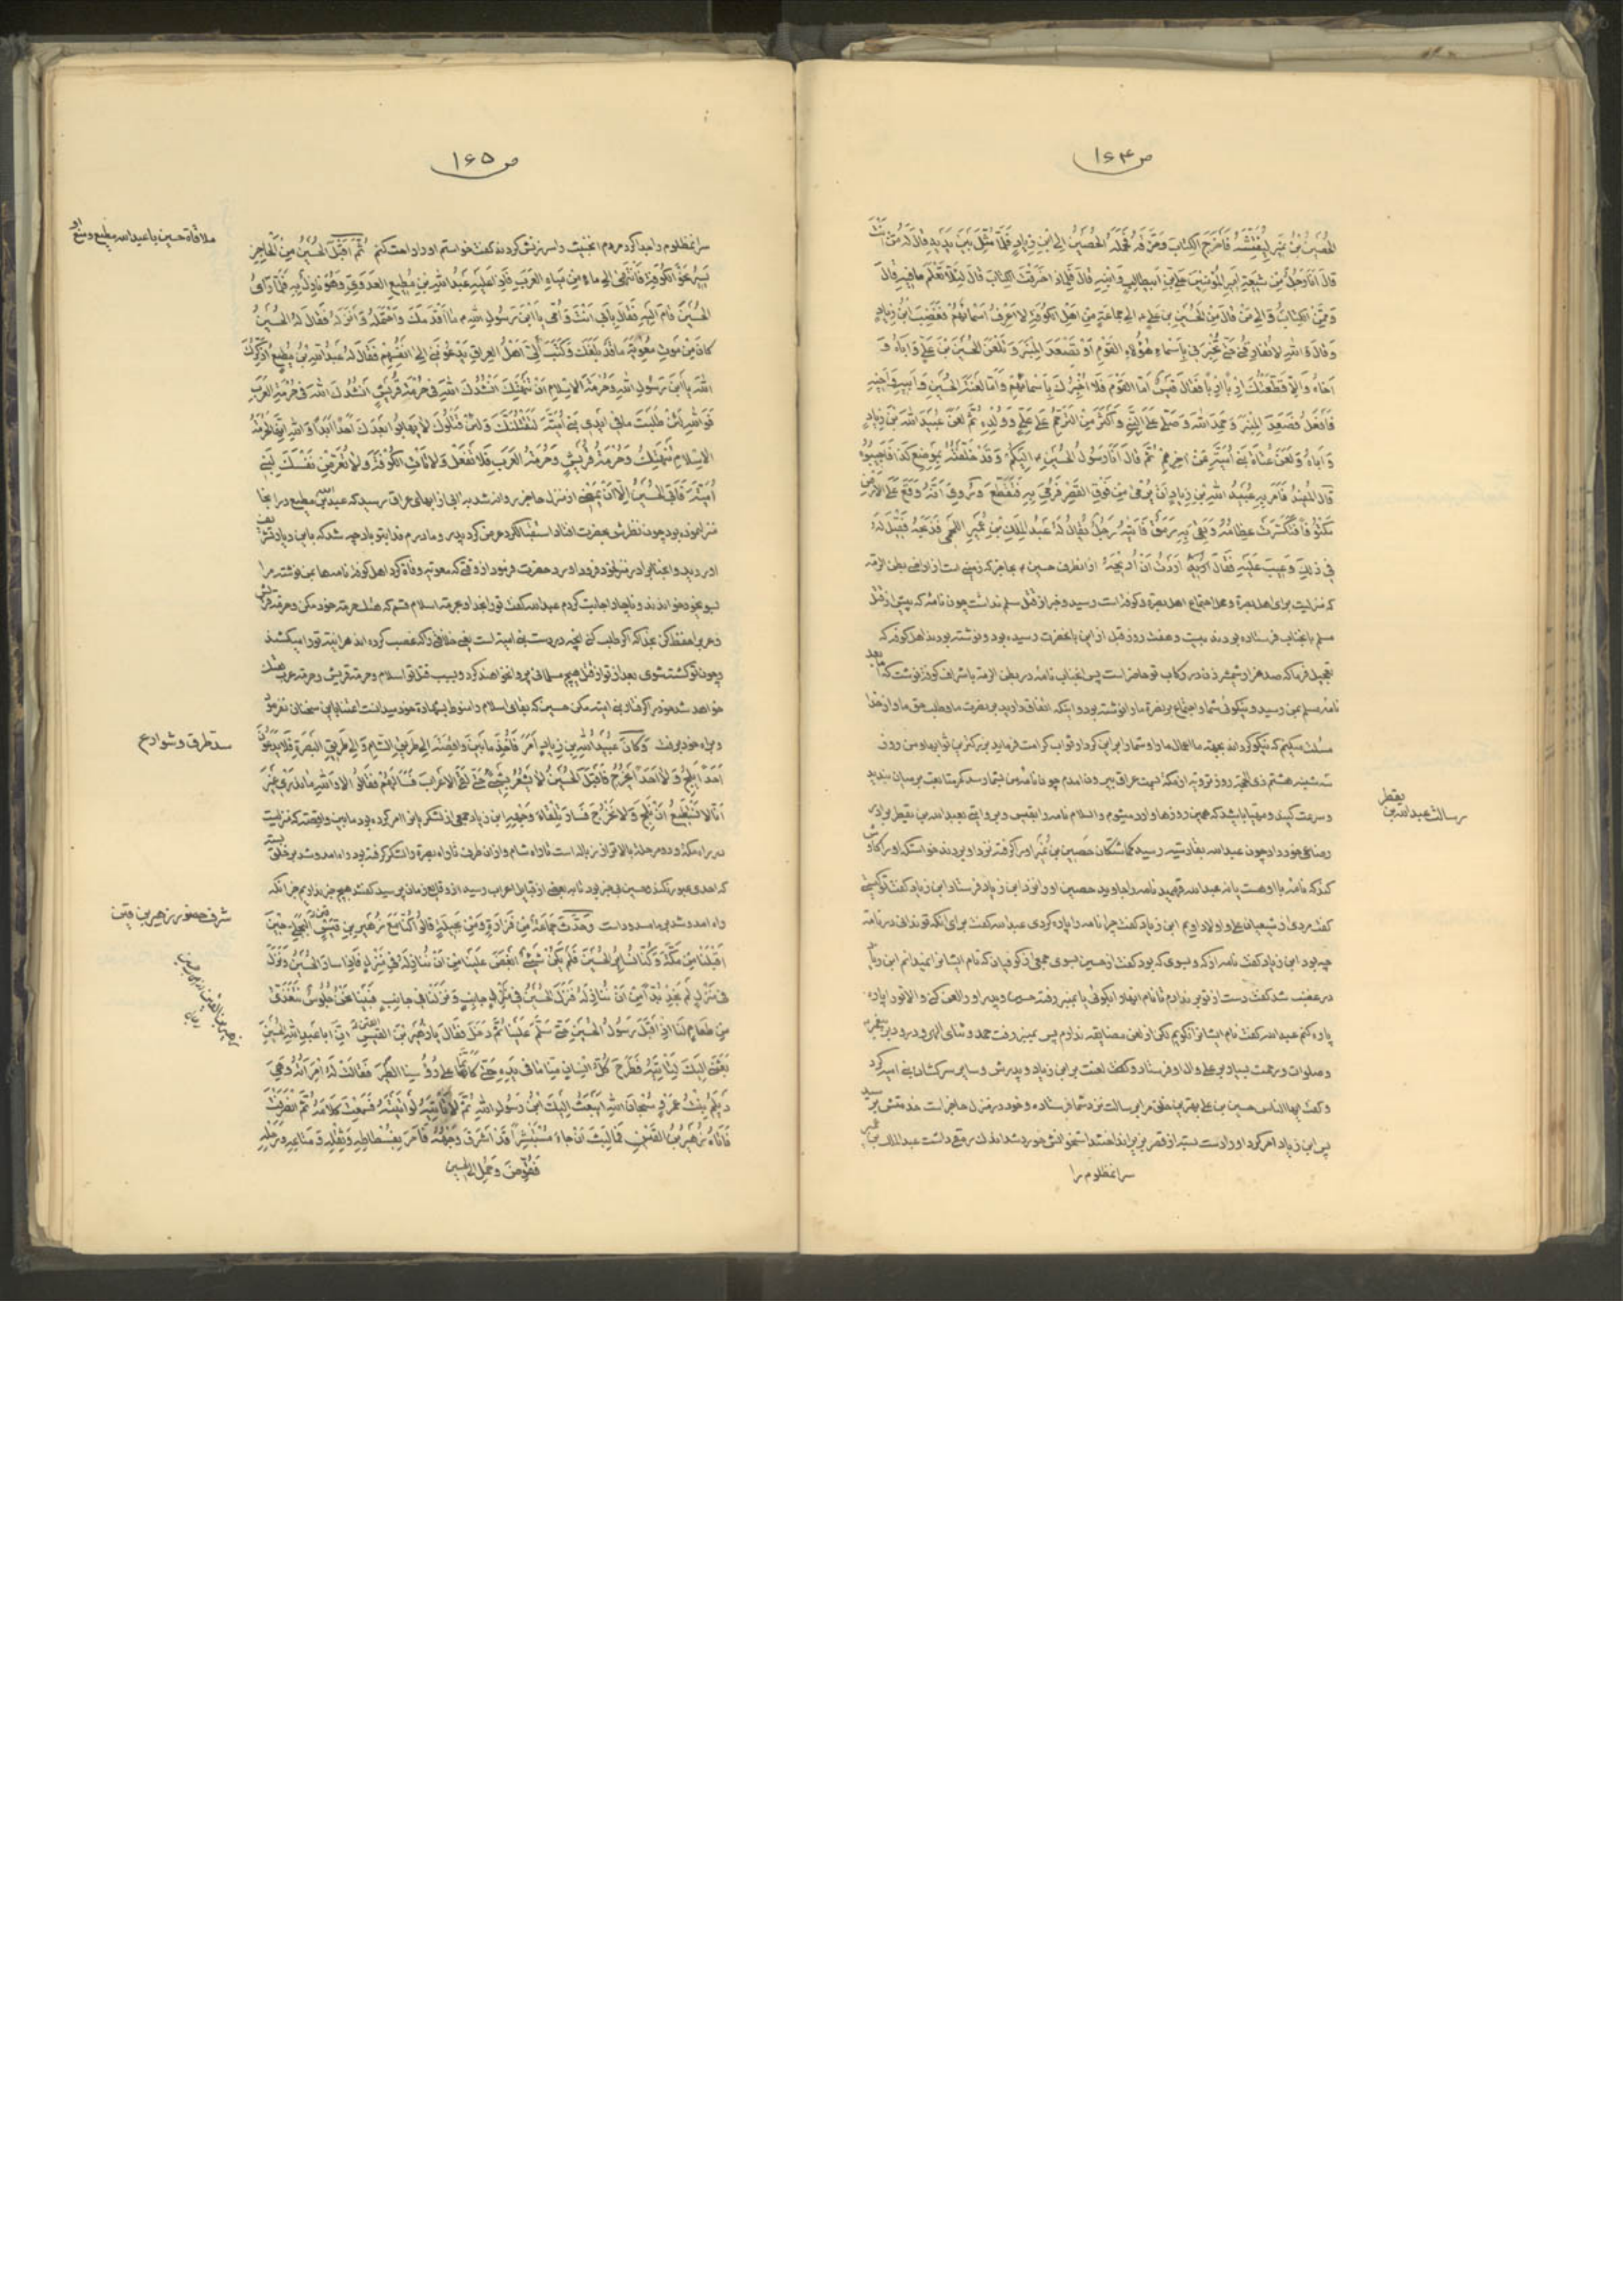 ص ۱۶۴
الحُصَينُ بْنُ نُمَيرٍ لِيُفَتِّشَهُ فَاَخْرَجَ الكِتابَ وَمَزَّقَهُ فَحَمَلَهُ الحُصَينُ اِلَی ابْنِ زِيادٍ فَلَمّا مَثُلَ بَينَ يَدَيهِ قالَ لَهُ مَنْ اَنْتَ
قالَ اَنَا رَجُلٌ مِنْ شيعَةِ اَميرِ المُؤمِنينَ عَلِيّ بْنِ اَبيطالِبٍ وَابْنِهِ قالَ فَلِماذا خَرَقْتَ الكِتابَ قالَ لِئَلّا تَعْلَمَ ما فيهِ قالَ
وَمِمَّنِ الكِتابُ وَاِلی مَنْ قالَ مِنَ الحُسَينِ بْنِ عَلِيٍّ اِلی جَماعَةٍ مِنْ اَهْلِ الكُوفَةِ لا اَعْرِفُ اَسْمائَهُمْ فَغَضِبَ ابْنُ زِيادٍ
وَقالَ وَاللهِ لا تُفارِقُني حَتّی تُخْبِرَني بِاَسْماءِ هؤُلاءِ القَوْمِ اَوْ تَصْعَدَ المِنْبَرَ وَتَلْعَنَ الحُسَينَ بْنَ عَلِيٍّ وَاَباهُ وَ
اَخاهُ وَاِلّا قَطَّعْتُكَ اِرْباً اِرْباً فَقالَ قَيسٌ اَمَّا القَوْمُ فَلا اُخْبِرُكَ بِاَسْمائِهِمْ وَاَمّا لَعْنَةُ الحُسَينِ وَاَبيهِ وَاَخيهِ
فَاَفْعَلُ فَصَعِدَ المِنْبَرَ وَحَمِدَ اللهَ وَصَلّی عَلَی النَّبِيِّ وَاَكْثَرَ مِنَ التَّرَحُّمِ عَلی عَلِيٍّ وَوُلْدِهِ ثُمَّ لَعَنَ عُبَيدَ اللهِ بْنَ زِيادٍ
وَاَباهُ وَلَعَنَ عُتاةَ بَني اُمَيَّةَ عَنْ اٰخِرِهِمْ ثُمَّ قالَ اَنَا رَسُولُ الحُسَينِ اِلَيكُمْ وَقَدْ خَلَّفْتُهُ بِمَوْضِعِ كَذا فَاَجيبُوهُ
قالَ المُفيدُ فَاَمَرَ بِهِ عُبَيدُ اللهِ بْنُ زِيادٍ اَنْ يُرْمی مِنْ فَوْقِ القَصْرِ فَرُمِيَ بِهِ فَتَقَطَّعَ وَرُوِيَ اَنَّهُ وَقَعَ عَلَی الاَرْضِ
مَكْتُوفاً فَتَكَسَّرَتْ عِظامُهُ وَبَقِيَ بِهِ رَمَقٌ فَاَتاهُ رَجُلٌ يُقالُ لَهُ عَبْدُ المَلِكِ بْنُ عُمَيرٍ اللَّخْمِيُّ فَذَبَحَهُ فَقيلَ لَهُ
في ذلِكَ وَعيبَ عَلَيهِ فَقالَ اَرَدْتُ اَنْ اُريحَهُ از انطرف حسين م بحاجز كه زمينی است از نواحی بطن الرمة
كه منزليست برای اهل بصرة ومحل اجتماع اهل بصرة وكوفه است رسيد وخبر از قتل مسلم نداشت چون نامه كه پيش از قتل
مسلم بانجناب فرستاده بود بيست وهفت روز قبل از اين بانحضرت رسيده بود ونوشته بودند اهل كوفه كه
تعجيل فرما كه صد هزار شمشير زن در ركاب تو حاضر است پس انجناب نامه در بطن الرمة باشراف كوفه نوشت كه اما بعد
نامه مسلم بمن رسيد ونيكوئی شما واجتماع بر نصرة ما را نوشته بود واينكه اتفاق داريد بر نصرت ما وطلب حق ما واز خدا
مسئلت ميكنم كه نيكو كرداند بجهة ما اعمال ما را وشما را بر اين كردار ثواب كرامت فرمايد بزركترين ثوابها ومن روز
سه شنبه هشتم ذی الحجة روز تروية از مكه بسمت عراق بيرون امدم چون نامه من بشما رسد كمر متابعت بر ميان ببنديد
وسرعت كنيد ومهيا باشيد كه همين روزها وارد ميشوم والسلام نامه را بقيس وبروايتی بعبدالله بن يقطر برادر
رضاعی خود داد چون عبدالله بقادسيه رسيد كماشتكان حصين بن نمير او را كرفته نزد او بردند خواست كه او را كاوش
كند كه نامه با او هست يا نه عبدالله فهميد نامه را جاويد حصين او را نزد ابن زياد فرستاد ابن زياد كفت تو كيستی
كفت مردی از شيعيان علی واولاد اويم ابن زياد كفت چرا نامه را پاره كردی عبدالله كفت برای انكه تو ندانی در نامه
چه بود ابن زياد كفت نامه از كه وبسوی كه بود كفت از حسين بسوی جمعی از كوفيان كه نام ايشانرا نميدانم ابن زياد
در غضب شد كفت دست از تو بر ندارم تا نام انها را نكوئی يا بمنبر رفته حسين وپدر او را لعن كنی والا تو را پاره
پاره كنم عبدالله كفت نام ايشانرا نكويم لكن از لعن مضايقه ندارم پس بمنبر رفت حمد وثنای الهی ودرود بر پيغمبر
وصلوات ورحمت بسيار بر علی وال او فرستاد وكفت لعنت بر ابن زياد وپدرش وساير سركشان بنی اميه كرد
وكفت ايها الناس حسين بن علی بهترين خلق مرا برسالت نزد شما فرستاده وخود در منزل حاجز است خدمتش برسيد
پس ابن زياد امر كرد او را دست بسته از قصر بزير انداختند استخوانش خورد شد اندك رمقی داشت عبدالملك بن عمير
سر انمظلوم را
رسالت عبدالله بن
يقطر
ص ۱۶۵
سر انمظلوم را جدا كرد مردم انخبيث را سرزنش كردند كفت خواستم او را راحت كنم ثُمَّ اَقْبَلَ الحُسَينُ مِنَ الحاجِزِ
يَسيرُ نَحْوَ الكُوفَةِ فَانْتَهی اِلی ماءٍ مِنْ مِياهِ العَرَبِ فَاِذا عَلَيهِ عَبْدُ اللهِ بْنُ مُطيعِ العَدَوِيِّ وَهُوَ نازِلٌ بِهِ فَلَمّا رَاَی
الحُسَينَ قامَ اِلَيهِ فَقالَ بِاَبي اَنْتَ وَاُمّي يَا ابْنَ رَسُولِ اللهِ م ما اَقْدَمَكَ وَاحْتَمَلَهُ وَاَنْزَلَهُ فَقالَ لَهُ الحُسَينُ
كانَ مِنْ مَوْتِ مُعوِيَةَ ما قَدْ بَلَغَكَ وَكَتَبَ اِلَيَّ اَهْلُ العِراقِ يَدْعُونَني اِلی اَنْفُسِهِمْ فَقالَ لَهُ عَبْدُ اللهِ بْنُ مُطيعٍ اُذَكِّرُكَ
اللهَ يَا ابْنَ رَسُولِ اللهِ وَحُرْمَةَ الاِسْلامِ اَنْ تُنْهَتَكَ اَنْشُدُكَ اللهَ في حُرْمَةِ قُرَيشٍ اَنْشُدُكَ اللهَ في حُرْمَةِ العَرَبِ
فَوَاللهِ لَئِنْ طَلَبْتَ ما في اَيدي بَني اُمَيَّةَ لَيَقْتُلُنَّكَ وَلَئِنْ قَتَلُوكَ لا يَهابُوا بَعْدَكَ اَحَداً اَبَداً وَاللهِ اِنَّها لَحُرْمَةُ
الاِسْلامِ تُنْهَتَكُ وَحُرْمَةُ قُرَيشٍ وَحُرْمَةُ العَرَبِ فَلا تَفْعَلْ وَلا تَأْتِ الكُوفَةَ وَلا تُعَرِّضْ نَفْسَكَ لِبَني
اُمَيَّةَ فَاَبَی الحُسَينُ اِلّا اَنْ يَمْضِيَ از منزل حاجز روانه شد به ابی از ابهای عراق رسيد كه عبدالله مطيع در انجا
منزل نموده بود چون نظرش بحضرت افتاد استقبال كرد عرض كرد پدر ومادرم فدايتو باد چه شد كه باين ديار تشريف
اورديد وانجنابرا در منزل خود فرود اورد حضرت فرمود از وقتی كه معويه وفاة كرد اهل كوفه نامه ها بمن نوشته مرا
بسوی خود خواندند وناچار اجابت كردم عبدالله كفت تو را بخدا وحرمة اسلام قسم كه هتك حرمة خود مكن وحرمة قريش
وعرب را حفظ كن بخدا كه اكر طلب كنی انچه در دست بنی اميه است يعنی خلافتی را كه غصب كرده اند هر اينه تو را ميكشند
وچون تو كشته شوی بعد از تو از قتل هيچ مسلمانی پروا نخواهند كرد وبسبب قتل تو اسلام وحرمة قريش وحرمة عرب هتك
خواهد شد خود را كرفتار بنی اميه مكن حسين كه بقای اسلام را منوط بشهادة خود ميدانست اعتنا باين سخنان نفرمود
وبراه خود برفت وَكانَ عُبَيدُ اللهِ بْنُ زِيادٍ اَمَرَ فَاُخِذَ ما بَينَ واقِصَةَ اِلی طَريقِ الشّامِ وَاِلی طَريقِ البَصْرَةِ فَلا يَدَعُونَ
اَحَداً يَلِجُ وَلا اَحَداً يَخْرُجُ فَاَقْبَلَ الحُسَينُ لا يَشْعُرُ بِشَيْءٍ حَتّی لَقِيَ الاَعْرابَ فَسَاَلَهُمْ فَقالُوا لا وَاللهِ ما نَدْري غَيرَ
اَنّا لا نَسْتَطيعُ اَنْ نَلِجَ وَلا نَخْرُجَ فَسارَ تِلْقاءَ وَجْهِهِ ابن زياد جمعی از لشكر را امر كرده بود مابين واقصه كه منزليست
در راه مكه ودو مرحله بالاتر از زباله است تا راه شام واز ان طرف تا راه بصرة را لشكر كرفته بود راه امد وشد بر خلق بسته
كه احدی عبور نكند حسين بيخبر بود تا به بعضی از قبايل اعراب رسيد از وقايع زمان پرسيد كفتند هيچ خبر نداريم جز انكه
راه امد وشد بر ما مسدود است وَحَدَّثَ جَماعَةٌ مِنْ فَزارَةَ وَمِنْ بَجيلَةَ قالُوا كُنّا مَعَ زُهَيرِ بْنِ قَيسٍ البَجَلِيِّ حينَ
اَقْبَلْنا مِنْ مَكَّةَ وَكُنّا نُسايِرُ الحُسَينَ فَلَمْ يَكُنْ شَيْءٌ اَبْغَضَ عَلَينا مِنْ اَنْ نُنازِلَهُ في مَنْزِلٍ فَاِذا سارَ الحُسَينُ وَنَزَلَ
في مَنْزِلٍ لَمْ نَجِدْ بُدّاً مِنْ اَنْ نُنازِلَهُ فَنَزَلَ الحُسَينُ في جانِبٍ وَنَزَلْنا في جانِبٍ فَبَينا نَحْنُ جُلُوسٌ نَتَغَدّی
مِنْ طَعامٍ لَنا اِذْ اَقْبَلَ رَسُولُ الحُسَينِ حَتّی سَلَّمَ عَلَينا ثُمَّ دَخَلَ فَقالَ يا زُهَيرَ بْنَ القَيسِ اِنَّ اَبا عَبْدِ اللهِ الحُسَينَ
بَعَثَني اِلَيكَ لِتَأْتِيَهُ فَطَرَحَ كُلُّ اِنْسانٍ مِنّا ما في يَدِهِ حَتّی كَاَنَّما عَلی رُؤُسِنَا الطَّيرَ فَقالَتْ لَهُ امْرَاَتُهُ وَهِيَ
دَيلَمُ بِنْتُ عَمْرٍو سُبْحانَ اللهِ اَيَبْعَثُ اِلَيكَ ابْنُ رَسُولِ اللهِ ثُمَّ لا تَأْتيهِ لَوْ اَتَيتَهُ فَسَمِعْتَ كَلامَهُ ثُمَّ انْصَرَفْتَ
فَاَتاهُ زُهَيرُ بْنُ القَينِ فَما لَبِثَ اَنْ جاءَ مُسْتَبْشِراً قَدْ اَشْرَقَ وَجْهُهُ فَاَمَرَ بِفُسْطاطِهِ وَثِقْلِهِ وَمَتاعِهِ وَرَحْلِهِ
فَقُوِّضَ وَحُمِلَ اِلَی الحسين
ملاقاة حسين با عبدالله مطيع ومنع او
سد طرق وشوارع
شرف حضور زهير بن قين